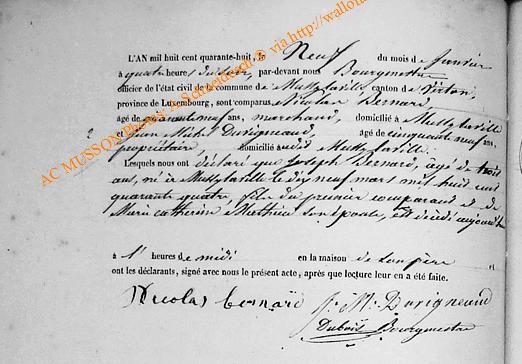 L'AN mil huit cent quarante-huit, le Neuf du mois de Janvier
à quatre heures du soir, par-devant nous Bourgmestre
officier de l'état civil de la commune de Mussy-la-ville canton de Virton,
province de Luxembourg, sont comparus Nicolas Bernard
âgé de ans, marchand, domicilié à Mussy-la-ville
2 et Jean Michel Duvigneaud, âgé de cinquante neuf ans,
propriétaire, domicilié audit Mussy-la-ville.
Lesquels nous ont déclaré que Joseph Bernard, âgé de trois
ans, né à Mussy-la-ville le dix neuf mars mil huit cent
quarante quatre, fils du premier comparant et de
Marie catherine Mathieu son épouse, est décédé aujourd'hui
à 1 heures de midi en la maison de son père et
ont les déclarants, signé avec nous le présent acte, après que lecture leur en a été faite.
Nicolas bernard J. M. Duvigneaud
Dubois Bourgmestre
AC MUSSON Photos A. Schleich © via http://wallon